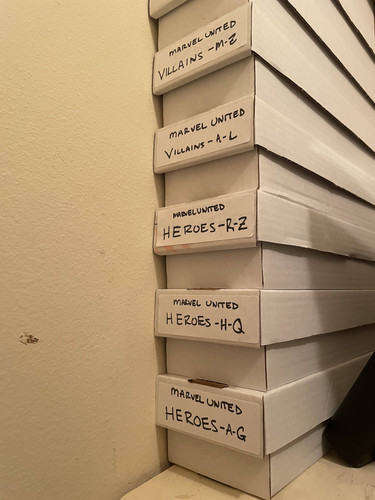 MARVEL UNITED
VILLAINS - M-Z
MARVEL UNITED
VILLAINS - A-L
MARVEL UNITED
HEROES - R-Z
MARVEL UNITED
HEROES - H-Q
MARVEL UNITED
HEROES - A-G